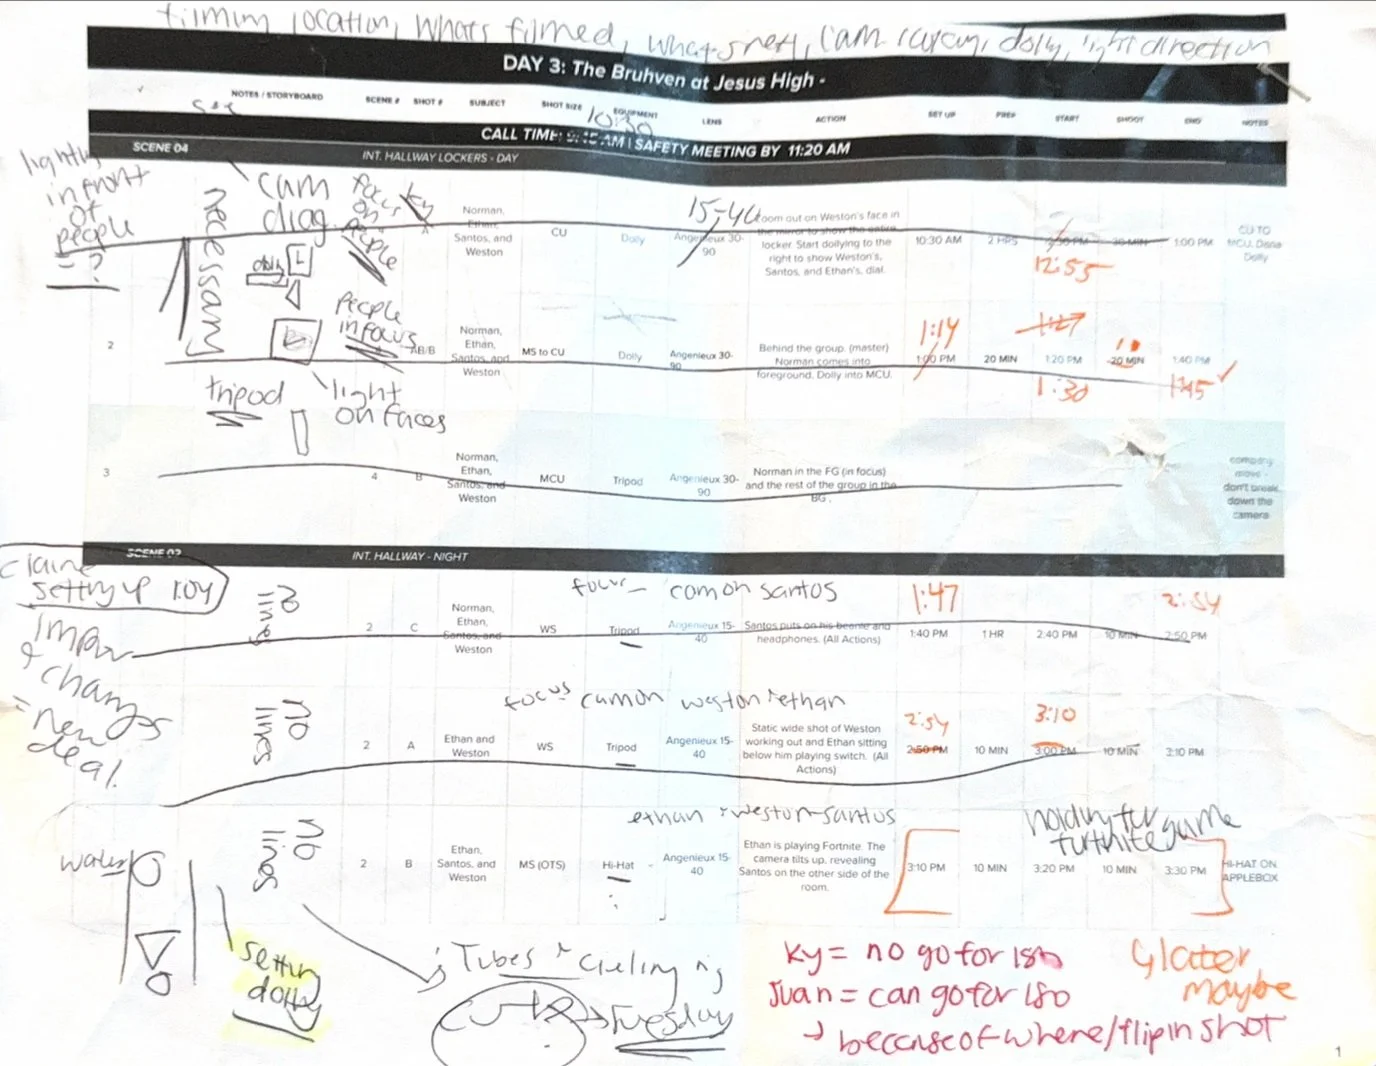 filming location, whats filmed, whats next, cam layout, dolly, light direction
DAY 3: The Bruhven at Jesus High -
NOTES / STORYBOARD SCENE # SHOT # SUBJECT SHOT SIZE EQUIPMENT LENS ACTION SET UP PREP START SHOOT END NOTES
10:30
CALL TIME: 9:45 AM | SAFETY MEETING BY 11:20 AM
SCENE 04 INT. HALLWAY LOCKERS - DAY
in front
of
people
= ?
necessary
cam
diag
focus
on
people
Key
dolly
L
15-40
Norman,
Ethan,
Santos, and
Weston
CU
Dolly
Angenieux 30-
90
oom out on Weston's face in
the mirror to show the entire
locker. Start dollying to the
right to show Weston's,
Santos, and Ethan's, dial.
10:30 AM
2 HRS
12:30 PM
30 MIN
1:00 PM
CU TO
MCU. Dana
Dolly
12:55
people
in focus
2
AB/B
Norman,
Ethan,
Santos, and
Weston
MS to CU
Dolly
Angenieux 30-
90
Behind the group. (master)
Norman comes into
foreground. Dolly into MCU.
1:14
1:00 PM
20 MIN
1:27
1:20 PM
1:30
20 MIN
1:40 PM
1:45
tripod
light
on faces
3
4
B
Norman,
Ethan,
Santos, and
Weston
MCU
Tripod
Angenieux 30-
90
Norman in the FG (in focus)
and the rest of the group in the
BG .
company
move -
don't break
down the
camera
INT. HALLWAY - NIGHT
setting up 1:04
changes
= new
deal
no
lines
focus - cam on santos
2
C
Norman,
Ethan,
Santos, and
Weston
WS
Tripod
Angenieux 15-
40
Santos puts on his beanie and
headphones. (All Actions)
1:47
1:40 PM
1 HR
2:40 PM
10 MIN
2:54
2:50 PM
no
lines
focus cam on weston + ethan
2
A
Ethan and
Weston
WS
Tripod
Angenieux 15-
40
Static wide shot of Weston
working out and Ethan sitting
below him playing switch. (All
Actions)
2:54
2:50 PM
10 MIN
3:10
3:00 PM
10 MIN
3:10 PM
no
lines
ethan + weston - santos
2
B
Ethan,
Santos, and
Weston
MS (OTS)
Hi-Hat
Angenieux 15-
40
Ethan is playing Fortnite. The
camera tilts up, revealing
Santos on the other side of the
room.
3:10 PM
10 MIN
holding for game
furtnite
3:20 PM
10 MIN
3:30 PM
HI-HAT ON
APPLEBOX
setting
dolly
Tubes + cieling
Tuesday
Ky = no go for 180
Juan = can go for 180
→ because of where/flip in shot
later
maybe
1